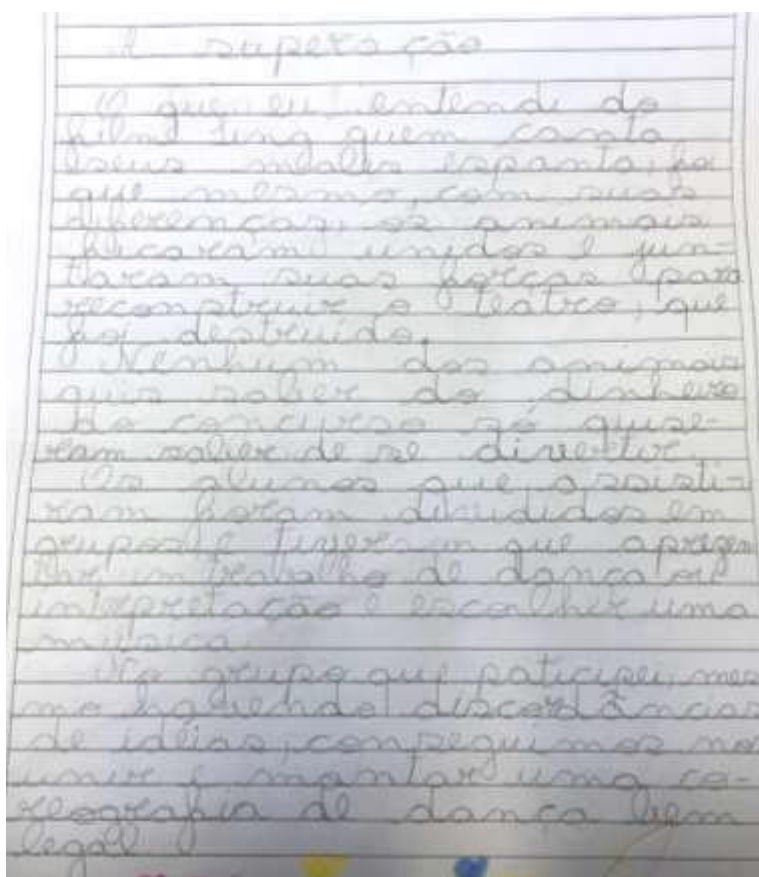 e superação
O que eu entendi do
filme Sing quem canta
seus males espanta, foi
que mesmo, com suas
diferenças, os animais
ficaram unidos e jun-
taram suas forças para
reconstruir o teatro, que
foi destruido.
Nenhum dos animais
quis saber do dinheiro
do concurso só quise-
ram saber de se divertir.
Os alunos que assisti-
ram foram divididos em
grupos e tiveram que aprezen
tar um trabalho de dança ou
interpretação e escolher uma
música.
No grupo que paticipei, mes
mo havendo discordâncias
de idéias, conseguimos nos
unir e montar uma co-
reografia de dança bem
legal